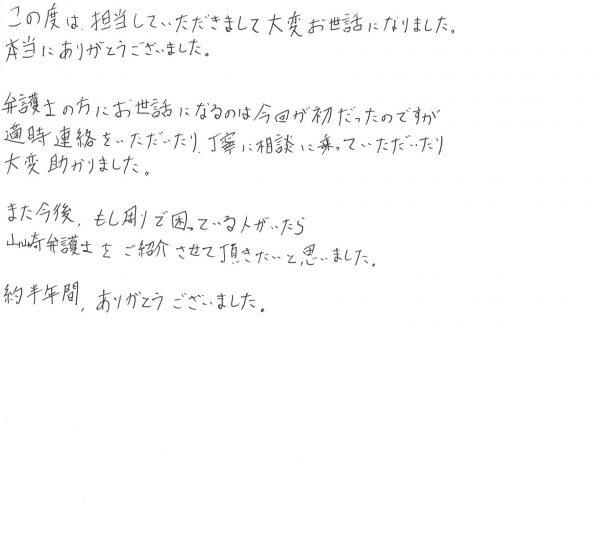 この度は、担当していただきまして大変お世話になりました。
本当にありがとうございました。
弁護士の方にお世話になるのは今回が初だったのですが
適時連絡をいただいたり、丁寧に相談に乗っていただいたり
大変助かりました。
また今後、もし周りで困っている人がいたら
山崎弁護士をご紹介させて頂きたいと思いました。
約半年間、ありがとうございました。